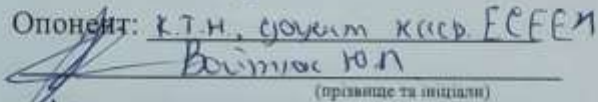 Опонент: к.т.н., доцент каф. ЕСЕЕМ
Войтюк Ю.П
(прізвище та ініціали)